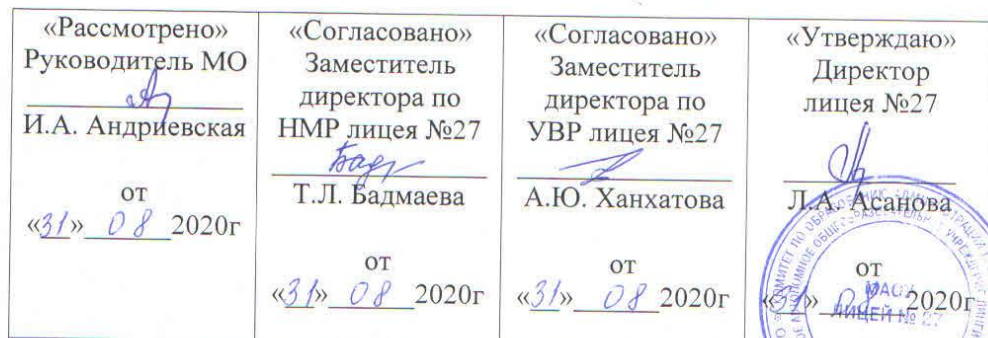 «Рассмотрено»
Руководитель МО
И.А. Андриевская
от
«31» 08 2020г
«Согласовано»
Заместитель
директора по
НМР лицея №27
Бадм
Т.Л. Бадмаева
от
«31» 08 2020г
«Согласовано»
Заместитель
директора по
УВР лицея №27
А.Ю. Ханхатова
от
«31» 08 2020г
«Утверждаю»
Директор
лицея №27
Л.А. Асанова
от
«31» 08 2020г
МАОУ
ЛИЦЕЙ № 27